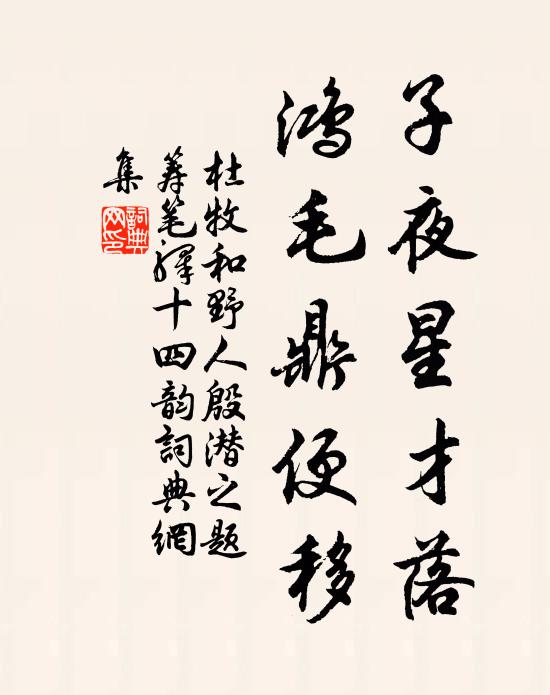 子夜星才落
鸿毛鼎便移
杜牧和野人殷潜之题
筹笔驿十四韵词典網
集
詞典網印